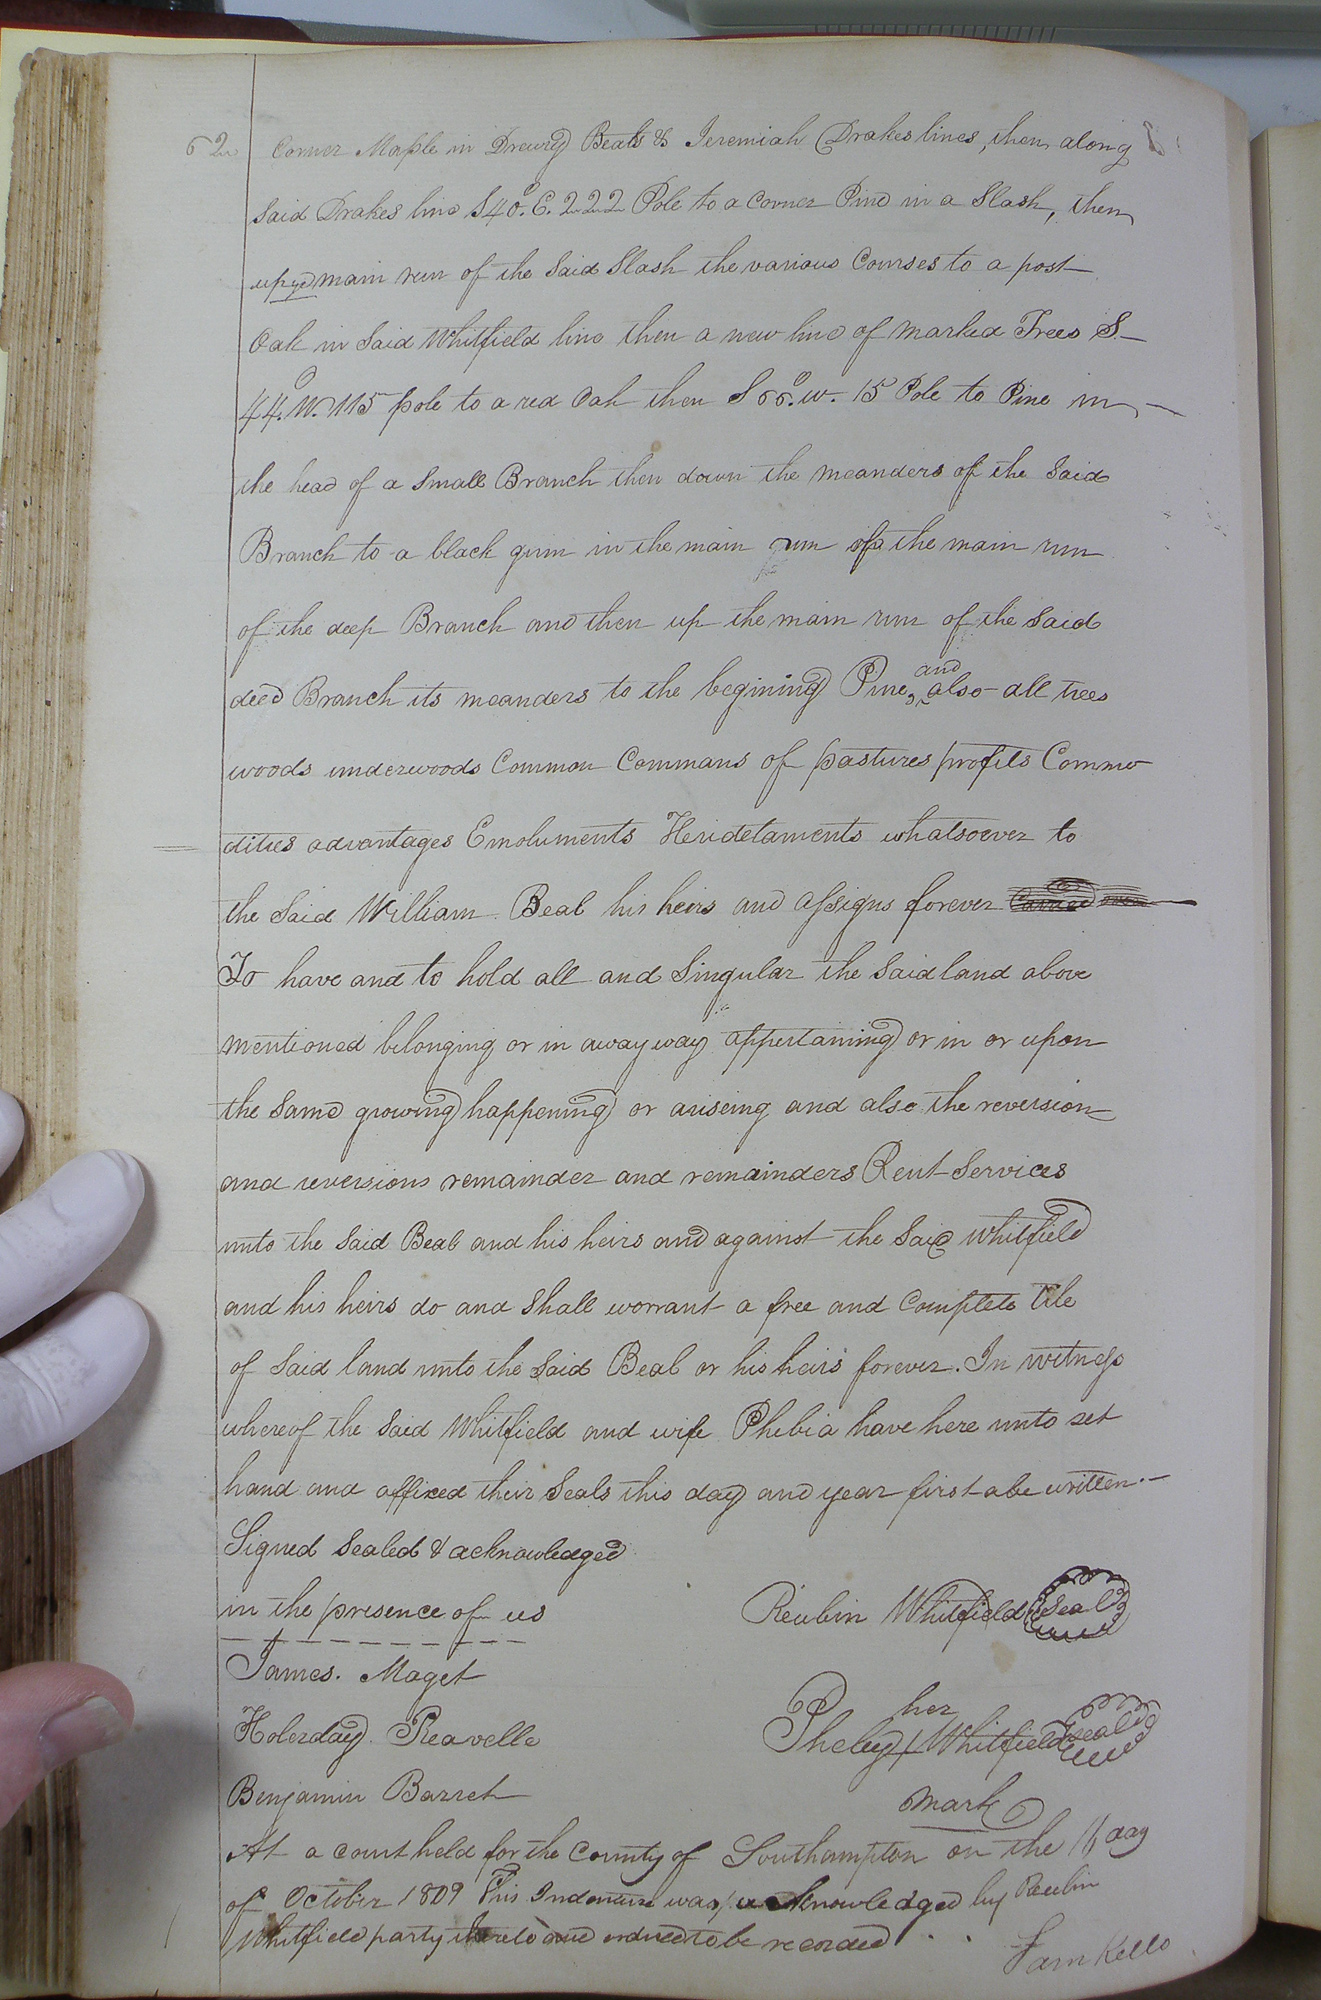 62 Corner Maple in Drewry Beals & Jeremiah Drakes lines, then along
Said Drakes line S40°. E. 222 Pole to a Corner Pine in a Slash, then
up ye main run of the Said Slash the various Courses to a post
Oak in Said Whitfield line then a new line of marked Trees S.
44°. W. 115 pole to a red Oak then S 66°. W. 15 Pole to Pine in
the head of a Small Branch then down the meanders of the Said
Branch to a black gum in the main run of the main run
of the deep Branch and then up the main run of the Said
deed Branch its meanders to the begining Pine, and also all trees
woods underwoods Common Commans of pastures profits Commo
dities advantages Emoluments Heridetaments whatsoever to
the Said William Beal his heirs and assigns forever
To have and to hold all and Singular the Said land above
mentioned belonging or in away way appertaining or in or upon
the Same growing happening or ariseing and also the reversion
and reversions remainder and remainders Rent Services
unto the Said Beal and his heirs and against the Said Whitfield
and his heirs do and Shall worrant a free and Complete title
of Said land unto the Said Beal or his heirs forever. In witness
whereof the Said Whitfield and wife Phebia have here unto set
hand and affixed their Seals this day and year first abe written.
Signed Sealed & acknowledged
in the presence of us
Reubin Whitfield Seal
James. Maget
her
Holerday Reavelle
Pheby + Whitfield Seal
Benjamin Barret
mark
At a court held for the County of Southampton on the 16 day
of October 1809 This Indenture was acknowledged by Reubin
Whitfield party thereto and ordered to be recorded
Sam Kello